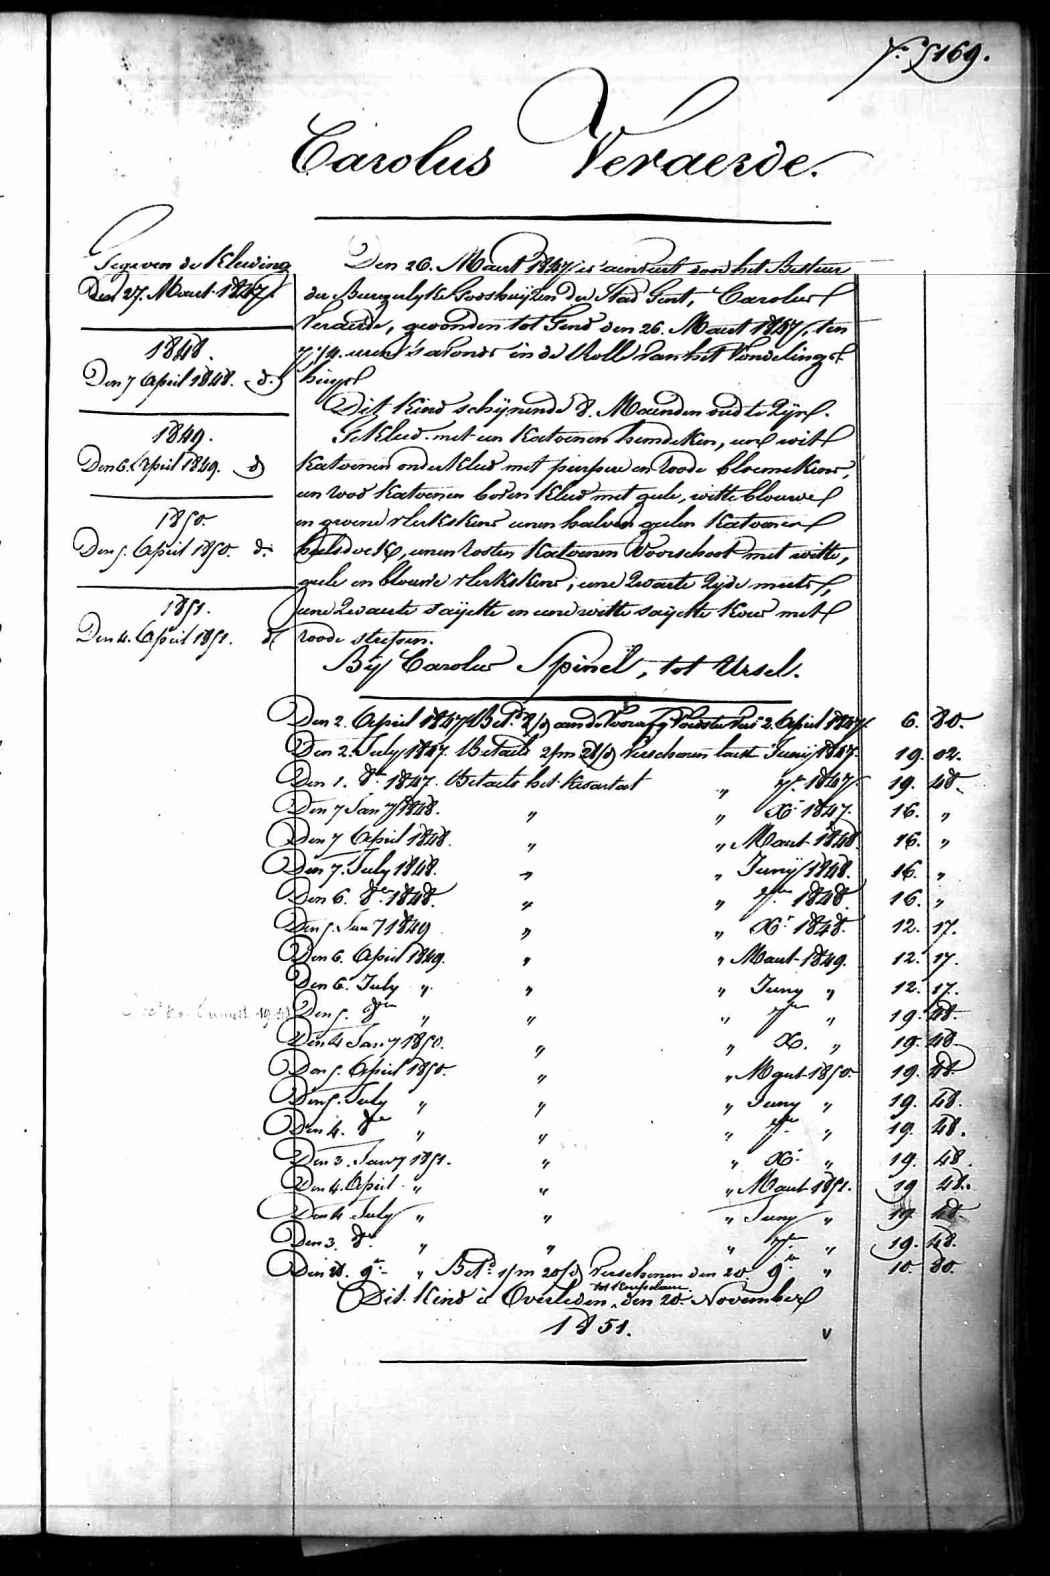 169.
Carolus Veraerde.
Gegeven de Kleeding
Den 27. Maart 1847.
1848.
Den 7 April 1848. d.
1849.
Den 6. April 1849. d
1850.
Den 5. April 1850. d.
1851.
Den 4. April 1851. d.
Den 26. Maart 1847 is aenveert door het Bestuur
der Burgerlyke Godshuyzen der Stad Gent, Carolus
Veraerde, gevonden tot Gend den 26. Maart 1847, ten
7 1/4 uren s'avonds in de Rolle van het Vondelings
huys.
Dit kind schynende 8. Maenden oud te zyn.
Gekleed met een Katoenen hemdeken, een wit
Katoenen onderkleed met purpere en roode bloemekens,
een rood Katoenen bovenkleed met gele, witte blouwe
en groene vlekskens eenen halven gelen Katoenen
halsdoek, eenen rosten Katoenen Voorschoot met witte,
geele en blouwe vlekskens, eene zwarte zyde muts,
eene zwarte sayette en eene witte sayette Kous met
roode strepen.
By Carolus Spinel, tot Ursel.
Den 2. April 1847 Bet. aen de Voorsz. 2. April 1847. 6. 80.
Den 2. July 1847. Betaelt 2/m verschenen laest Juny 1847. 19. 02.
Den 1. 8er 1847. Betaelt het kwartael „ 7er 1847. 19. 48.
Den 7 Jany 1848. „ „ Xr 1847. 16. „
Den 7 April 1848. „ „ Maart 1848. 16. „
Den 7. July 1848. „ „ Juny 1848. 16. „
Den 6. 8er 1848. „ „ 7er 1848. 16. „
Den 5. Jany 1849 „ „ Xr 1848. 12. 17.
Den 6. April 1849. „ „ Maart 1849. 12. 17.
Den 6. July „ „ „ Juny „ 12. 17.
Den 5. 8er „ „ „ 7er „ 19. 48.
Den 4 Jany 1850. „ „ X. „ 19. 48.
Den 5. April 1850. „ „ Maart 1850. 19. 48.
Den 5. July „ „ „ Juny „ 19. 48.
Den 4. 8er „ „ „ 7er „ 19. 48.
Den 3. Jany 1851. „ „ Xr „ 19. 48.
Den 4. April „ „ „ Maart 1851. 19 48.
Den 4 July „ „ „ Juny „ 19. 48.
Den 3. 8er „ „ „ 7er „ 19. 48.
Den 9er „ Bet. 1/m 20/d verschenen den 20. 9er „ 10. 80.
Dit Kind is Overleden den 20. November
1851.